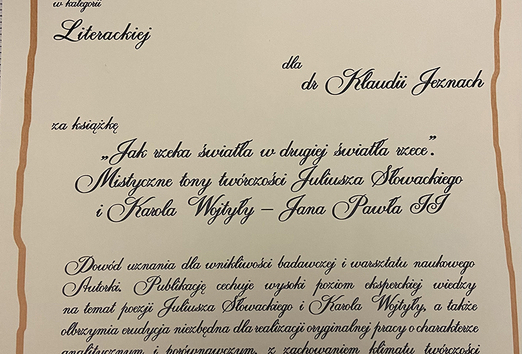 w kategorii
Literackiej
dla
dr Klaudii Jeznach
za książkę
„Jak rzeka światła w drugiej światła rzece”.
Mistyczne tony twórczości Juliusza Słowackiego
i Karola Wojtyły – Jana Pawła II
Dowód uznania dla wnikliwości badawczej i warsztatu naukowego
Autorki. Publikację cechuje wysoki poziom eksperckiej wiedzy
na temat poezji Juliusza Słowackiego i Karola Wojtyły, a także
olbrzymia erudycja niezbędna dla realizacji oryginalnej pracy o charakterze
analitycznym i porównawczym, z zachowaniem klimatu twórczości